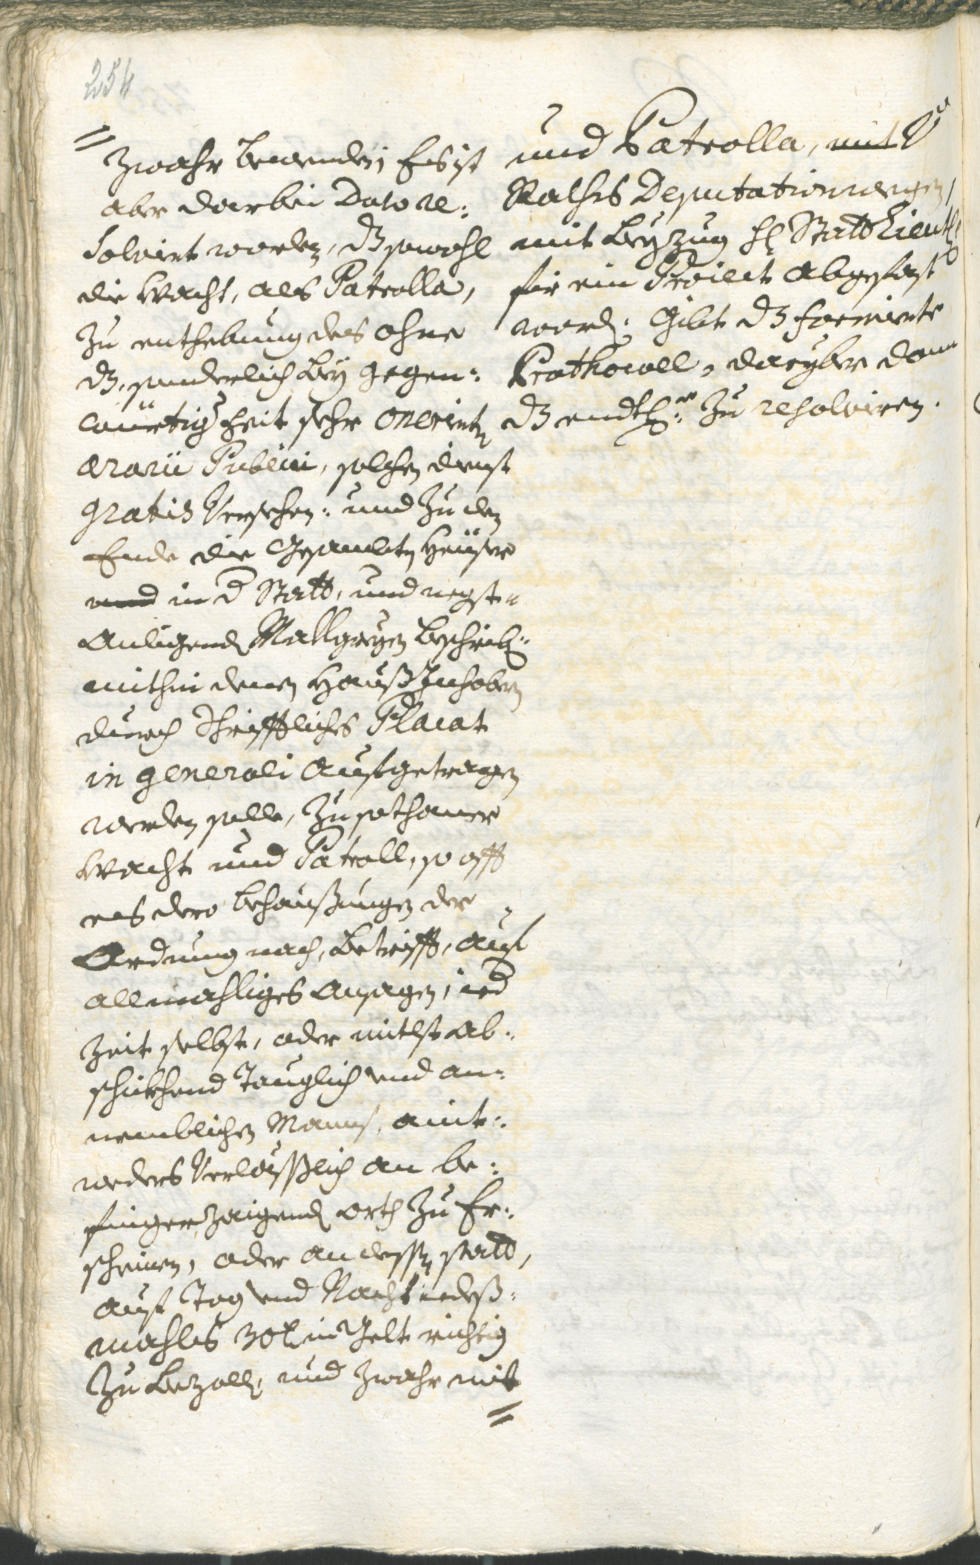 254
zwahr bewenden; Es ist
aber darbei Dato re:
solvirt worden, dz sowohl
die Wacht, als Patrolla,
zu enthebung des ohne
dz, sonderlich bey gegen:
würtig Zeit sehr onerirtn
ærarii Publici, solchen dienst
gratis Versehen: und zu den
Ende die Gesambten Heüser
und in d Statt, und negst=
Anligend Mallgreyen beschrib:
mithin denen Hauß Inhabern
durch Schrifftliches Placat
in generali Aufgetragen
werden solle, zu sothaner
Wacht und Patroll, so offt
es dero behaußungen der
Ordnung nach, betrifft, auf
allmahliges Ansagen, ied
Zeit selbst, oder mitlst Ab:
schikhend Tauglich und an:
nemblichen Manns, aint:
weders Verläßlich an be:
finger zaigend orth zu Er:
scheinen, oder an dessen statt,
auf Tag und Nacht iedeß:
mahls 30 x in Gelt richtig
zu bezalln, und zwahr mit
und Patrolla, mit
Raths Deputation wegen,
mit beyzug H Statt Lieut:
fir ein Proiect abgefast
word: Gibt dz formirte
Prothocoll, daryber dann
dz endtl: zu resolviren.